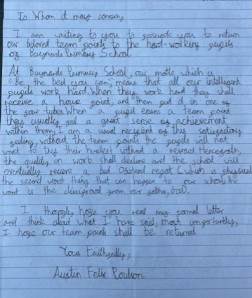 To Whom it may concern,
I am writing to you to persuade you to return
our beloved team points to the hard-working pupils
of Primary School.
At Primary School, our motto which is
be the best you can, means that all our intelligent
pupils work hard. When they work hard they shall
receive a house point, and then put it in one of
the four tubes. When a pupil earns a team point
they usually feel a great sense of achievement
within them. I am a usual recipient of this satisfactory
feeling. Without the team points the pupils will not
want to try their hardest without a reward. Henceforth,
the quality of work shall decline and the school will
eventually receive a bad Ofsted report which is
the second worst thing that can happen to our school
went is the from our
I hope you read my formal letter
and think about what I have said, most importantly,
I hope our team points shall be returned.
Yours Faithfully,
Austin Felix